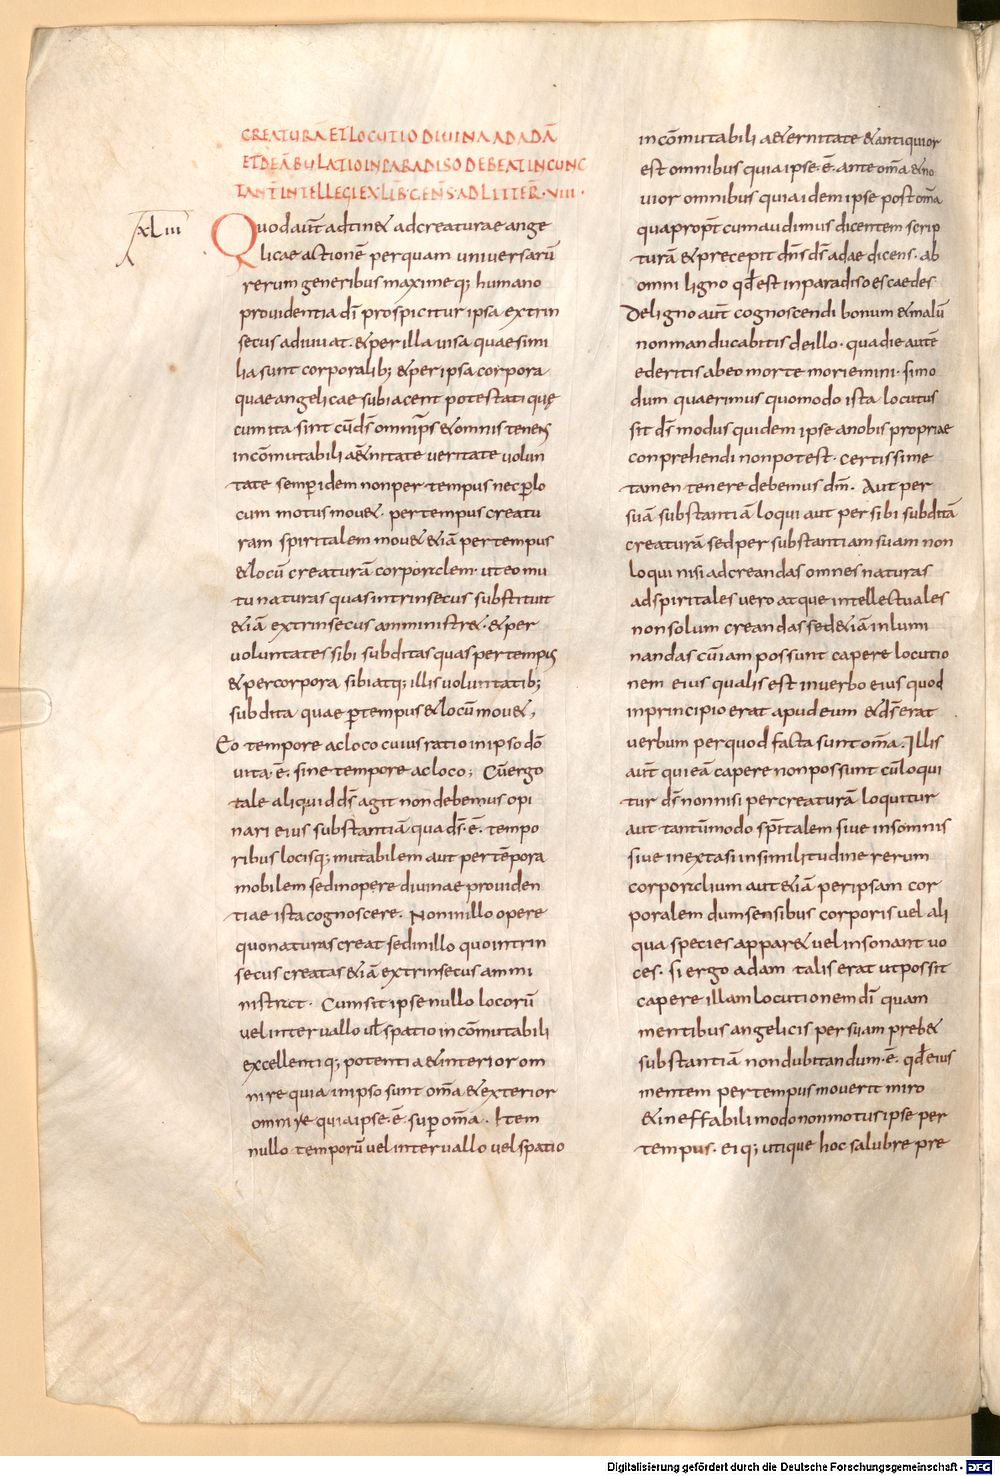 CREATURĀ ET LOCUTIO DIUINA AD ADĀ
ET DEĀBULATIO IN PARADISO DEBEAT INCUNC
TANT̄ INTELLEGI EX LIB̄ GEN̄S AD LITTER̄ · VIII ·
XLIII
Quod aut̄ adtin& ad creaturae ange
licae actionē per quam universarū
rerum generibus maximeq; humano
prouidentia dī prospicitur ipsa extrin
secus adiuuat · & per illa uisa quae simi
lia sunt corporalib; & per ipsa corpora
quae angelicae subiacent potestati quę
cum ita sint cū dš omnip̄s & omnis tenens
incōmutabili a&nitate veritate uolun
tate semp idem non per tempus nec p lo
cum motus mou& · per tempus creatu
ram spiritalem mou& &iā per tempus
& locū creaturā corporalem · ut eo mu
tu naturas quas intrinsecus substituit
&iā extrinsecus amministr& · & per
uoluntates sibi subditas quas per tempus
& per corpora sibi atq; illis uoluntatib;
subdita quae p tempus & locū mou& ,
Eo tempore ac loco cuius ratio in ipso dō
uita · ē · sine tempore ac loco ; Cū ergo
tale aliquid dš agit non debemus opi
nari eius substantiā qua dš · ē · tempo
ribus locisq; mutabilem aut per tēpora
mobilem sed in opere diuinae prouiden
tiae ista cognoscere . Non in illo opere
quo naturas creat sed in illo quo intrin
secus creatas &iā extrinsecus ammi
nistrat · Cum sit ipse nullo locorū
uel interuallo uł spatio incōmutabili
excellentiq; potentia & interior om
ni re quia in ipso sunt om̄a & exterior
omni re quia ipse · ē · sup om̄a · Item
nullo temporū uel interuallo uel spatio
incōmutabili a&ernitate & antiquior
est omnibus quia ipse · ē · ante om̄a & no
uior omnibus quia idem ipse post om̄a
quapropt̄ cum audimus dicentem scrip
turā & precepit dn̄s dš adae dicens · ab
omni ligno qđ est in paradiso escae des
De ligno aut̄ cognoscendi bonum & malū
non manducabitis de illo · qua die autē
ederitis ab eo morte moriemini · si mo
dum quaerimus quomodo ista locutus
sit dš modus quidem ipse a nobis propriae
conprehendi non potest · certissime
tamen tenere debemus dm̄ · Aut per
suā substantiā loqui aut per sibi subditā
creaturā sed per substantiam suam non
loqui nisi ad creandas omnes naturas
ad spiritales uero atque intellectuales
non solum creandas sed &iā inlumi
nandas cū iam possunt capere locutio
nem eius qualis est in uerbo eius quod
in principio erat apud eum & dš erat
uerbum per quod facta sunt om̄a · Illis
aut̄ qui eā capere non possunt cū loqui
tur dš non nisi per creaturā loquitur
aut tantūmodo sp̄italem siue in somnis
siue in extasi in similitudine rerum
corporalium aut &iā per ipsam cor
poralem dum sensibus corporis uel ali
qua species appar& uel insonant uo
ces · si ergo adam talis erat ut possit
capere illam locutionem dī quam
mentibus angelicis per suam preb&
substantiā non dubitandum · ē · qđ eius
mentem per tempus mouerit miro
& ineffabili modo non motus ipse per
tempus · eiq; utique hoc salubre pre
Digitalisierung gefördert durch die Deutsche Forschungsgemeinschaft - DFG